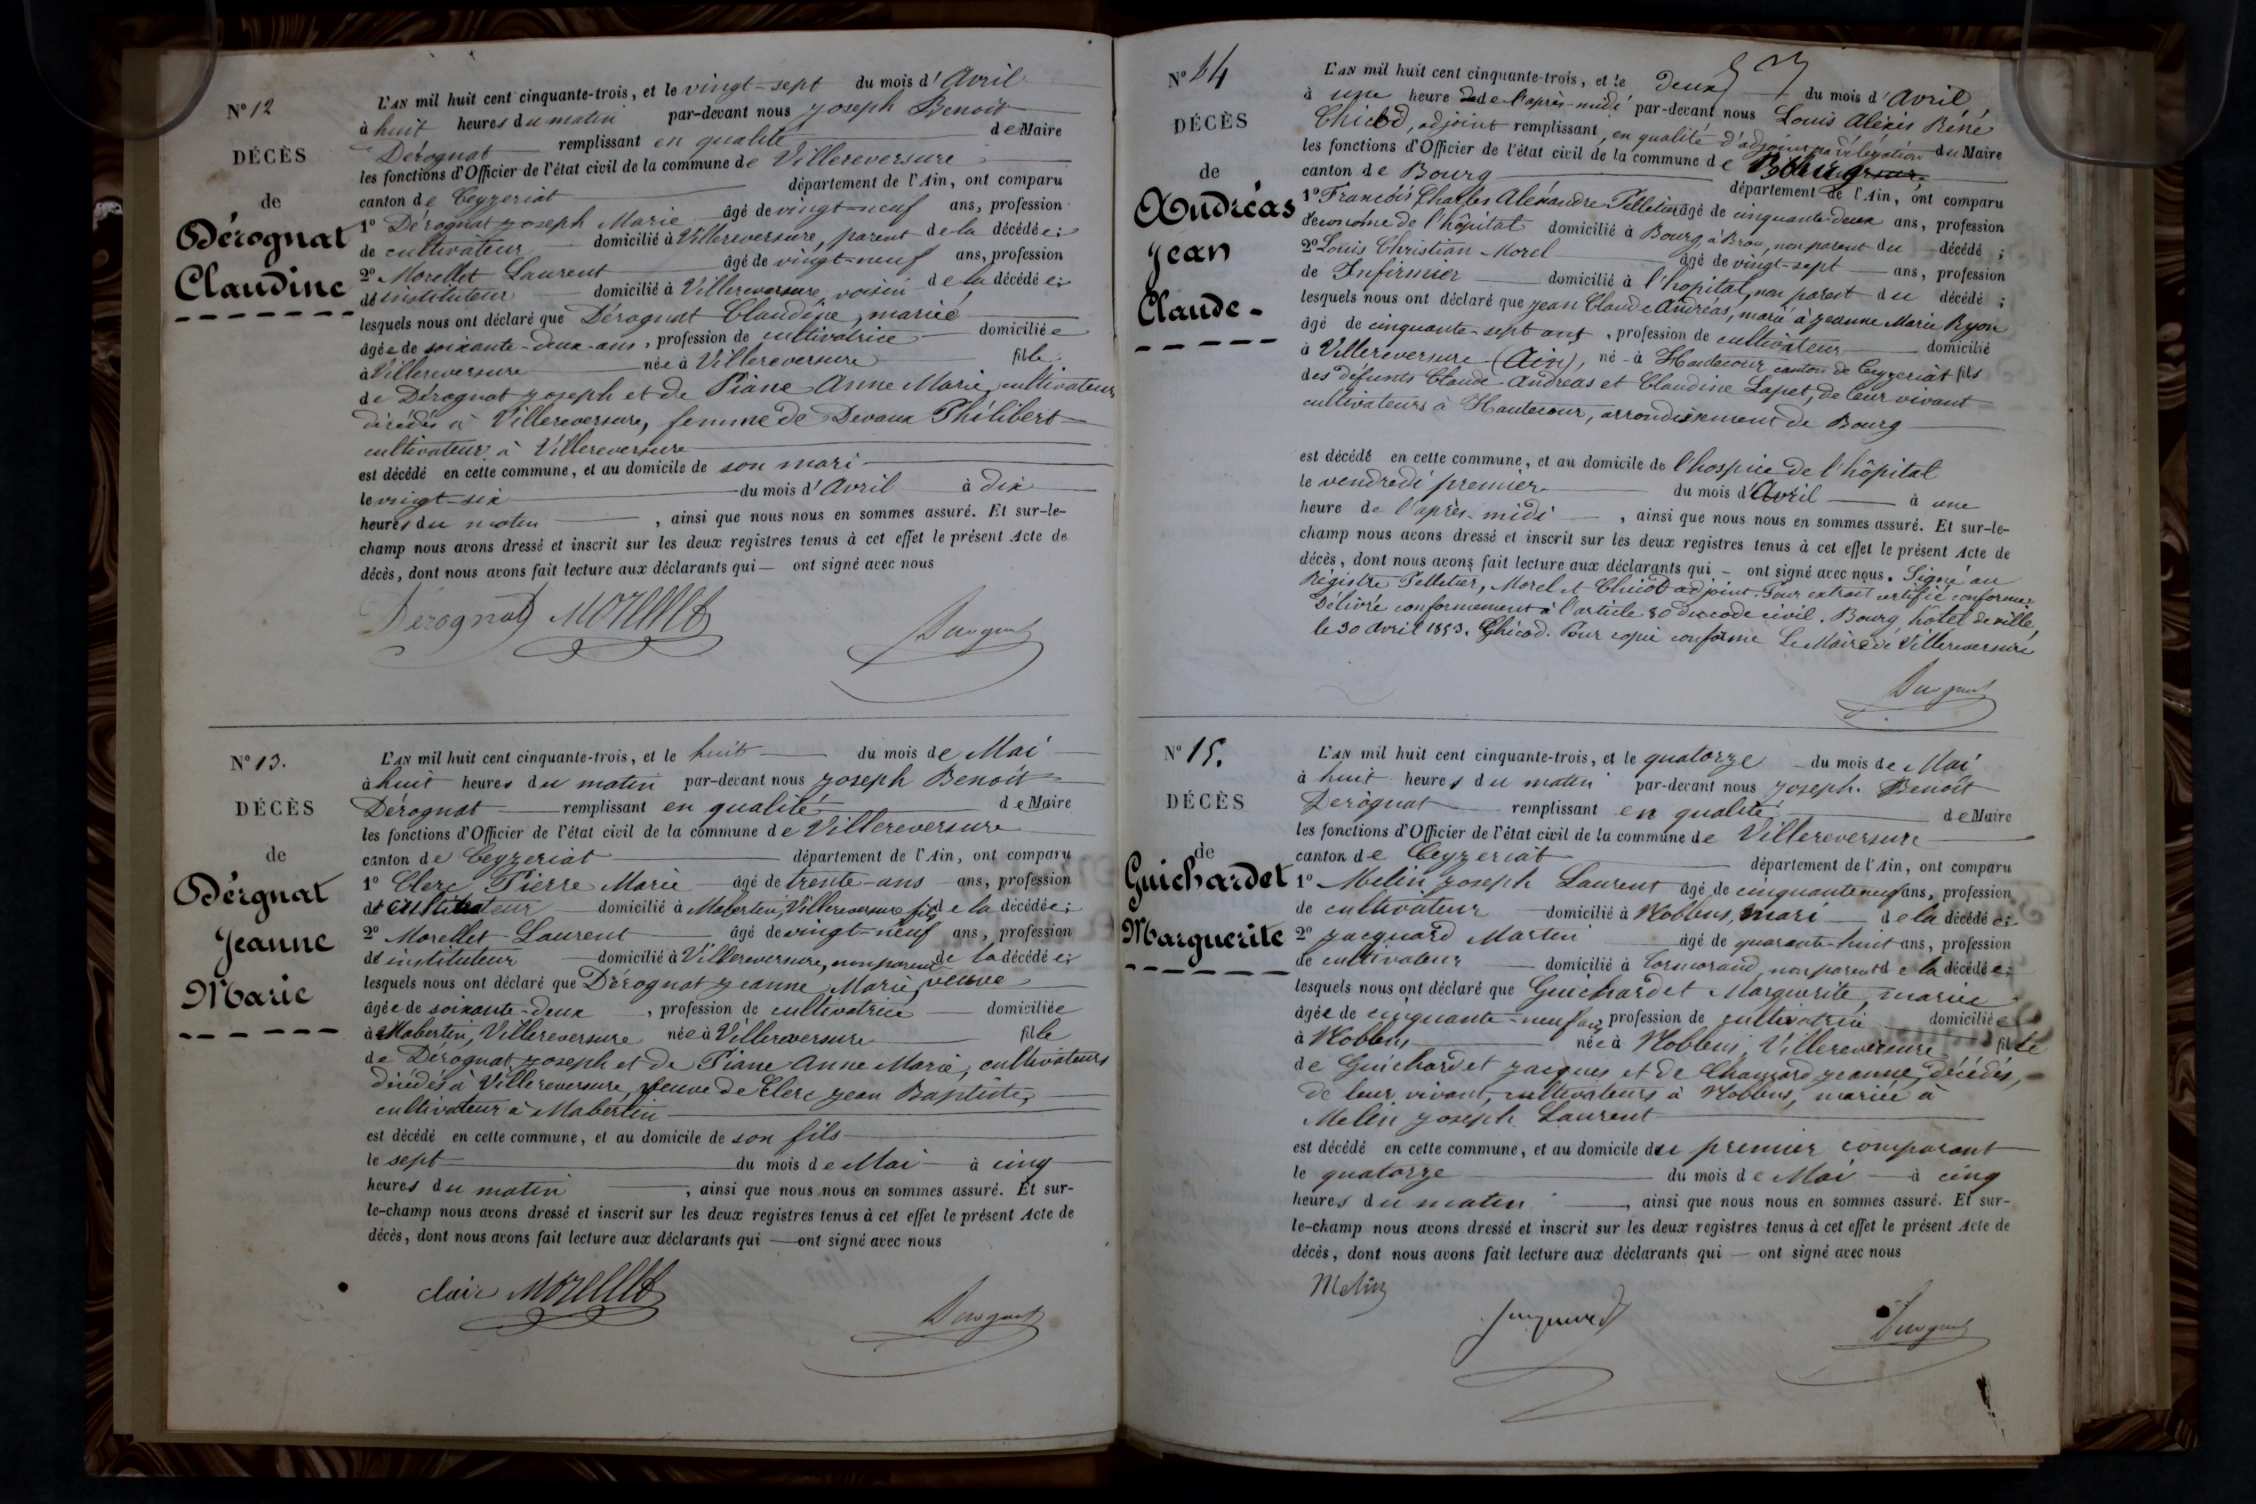 N° 12
DÉCÈS
de
Dérognat
Claudine
L'AN mil huit cent cinquante-trois, et le vingt-sept du mois d'Avril
à huit heures du matin par-devant nous Joseph Benoit
Dérognat remplissant en qualité de Maire
les fonctions d'Officier de l'état civil de la commune de Villereversure
canton de Ceyzeriat département de l'Ain, ont comparu
1° Dérognat Joseph Marie âgé de vingt-neuf ans, profession
de cultivateur domicilié à Villereversure, parent de la décédée;
2° Morellet Laurent âgé de vingt-neuf ans, profession
d'instituteur domicilié à Villereversure voisin de la décédée;
lesquels nous ont déclaré que Dérognat Claudine, mariée
âgée de soixante-deux-ans, profession de cultivatrice domiciliée
à Villereversure née à Villereversure fille
de Dérognat Joseph et de Piane Anne Marie, cultivateurs
décédés à Villereversure, femme de Devaux Philibert
cultivateur à Villereversure
est décédé en cette commune, et au domicile de son mari
le vingt-six du mois d'Avril à dix
heures du matin, ainsi que nous nous en sommes assuré. Et sur-le-
champ nous avons dressé et inscrit sur les deux registres tenus à cet effet le présent Acte de
décès, dont nous avons fait lecture aux déclarants qui — ont signé avec nous
Dérognat Morellet
N° 13.
DÉCÈS
de
Dérgnat
Jeanne
Marie
L'AN mil huit cent cinquante-trois, et le huit du mois de Mai
à huit heures du matin par-devant nous Joseph Benoit
Dérognat remplissant en qualité de Maire
les fonctions d'Officier de l'état civil de la commune de Villereversure
canton de Ceyzeriat département de l'Ain, ont comparu
1° Clerc Pierre Marie âgé de trente-ans ans, profession
de cultivateur domicilié à Mabertin, Villereversure fils de la décédée;
2° Morellet Laurent âgé de vingt-neuf ans, profession
d'instituteur domicilié à Villereversure, non parent de la décédée;
lesquels nous ont déclaré que Dérognat Jeanne Marie, veuve
âgée de soixante-deux, profession de cultivatrice domiciliée
à Mabertin, Villereversure née à Villereversure fille
de Dérognat Joseph et de Piane Anne Marie, cultivateurs
décédés à Villereversure, veuve de Clerc Jean Baptiste,
cultivateur à Mabertin
est décédé en cette commune, et au domicile de son fils
le sept du mois de Mai à cinq
heures du matin, ainsi que nous nous en sommes assuré. Et sur-
le-champ nous avons dressé et inscrit sur les deux registres tenus à cet effet le présent Acte de
décès, dont nous avons fait lecture aux déclarants qui — ont signé avec nous
Morellet
N° 14
DÉCÈS
de
Andréas
Jean
Claude
L'AN mil huit cent cinquante-trois, et le deux du mois d'Avril,
à une heure de l'après-midi par-devant nous Louis Alexis Réné
Chicod, adjoint remplissant, en qualité d'adjoint par délégation du Maire
les fonctions d'Officier de l'état civil de la commune de Bourg
canton de Bourg département de l'Ain, ont comparu
1° François Charles Alexandre Pelletier âgé de cinquante-deux ans, profession
d'econome de l'hôpital domicilié à Bourg, à Brou, non parent du décédé;
2° Louis Christian Morel âgé de vingt-sept ans, profession
de Infirmier domicilié à l'hopital, non parent du décédé;
lesquels nous ont déclaré que Jean Claude Andréas, marié à Jeanne Marie Ryon
âgé de cinquante-sept ans, profession de cultivateur domicilié
à Villereversure (Ain), né à Hautecour canton de Ceyzeriat fils
des défunts Claude Andréas et Claudine Lapet, de leur vivant
cultivateurs à Hautecour, arrondissement de Bourg
est décédé en cette commune, et au domicile de l'hospice de l'hôpital
le vendredi premier du mois d'Avril à une
heure de l'après-midi, ainsi que nous nous en sommes assuré. Et sur-le-
champ nous avons dressé et inscrit sur les deux registres tenus à cet effet le présent Acte de
décès, dont nous avons fait lecture aux déclarants qui — ont signé avec nous. Signé au
Régistre Pelletier, Morel et Chicod adjoint. Pour extrait certifié conforme
Délivré conformement à l'article 80 du code civil. Bourg hôtel de ville,
le 30 Avril 1853. Chicod. Pour copie conforme Le Maire de Villereversure
N° 15.
DÉCÈS
de
Guichardet
Marguerite
L'AN mil huit cent cinquante-trois, et le quatorze du mois de Mai
à huit heures du matin par-devant nous Joseph Benoit
Derognat remplissant en qualité de Maire
les fonctions d'Officier de l'état civil de la commune de Villereversure
canton de Ceyzeriat département de l'Ain, ont comparu
1° Melin Joseph Laurent âgé de cinquante neuf ans, profession
de cultivateur domicilié à Noblens, mari de la décédée;
2° Jacquard Martin âgé de quarante-huit ans, profession
de cultivateur domicilié à Cormorand, non parent de la décédée;
lesquels nous ont déclaré que Guichardet Marguerite, mariée
âgée de cinquante-neuf ans, profession de cultivatrice domiciliée
à Noblens née à Noblens, Villereversure fille
de Guichardet Jacques et de Chanard Jeanne, décédés,
de leur vivant, cultivateurs à Noblens, mariée à
Melin Joseph Laurent
est décédé en cette commune, et au domicile du premier comparant
le quatorze du mois de Mai à cinq
heures du matin, ainsi que nous nous en sommes assuré. Et sur-
le-champ nous avons dressé et inscrit sur les deux registres tenus à cet effet le présent Acte de
décès, dont nous avons fait lecture aux déclarants qui — ont signé avec nous
Melin